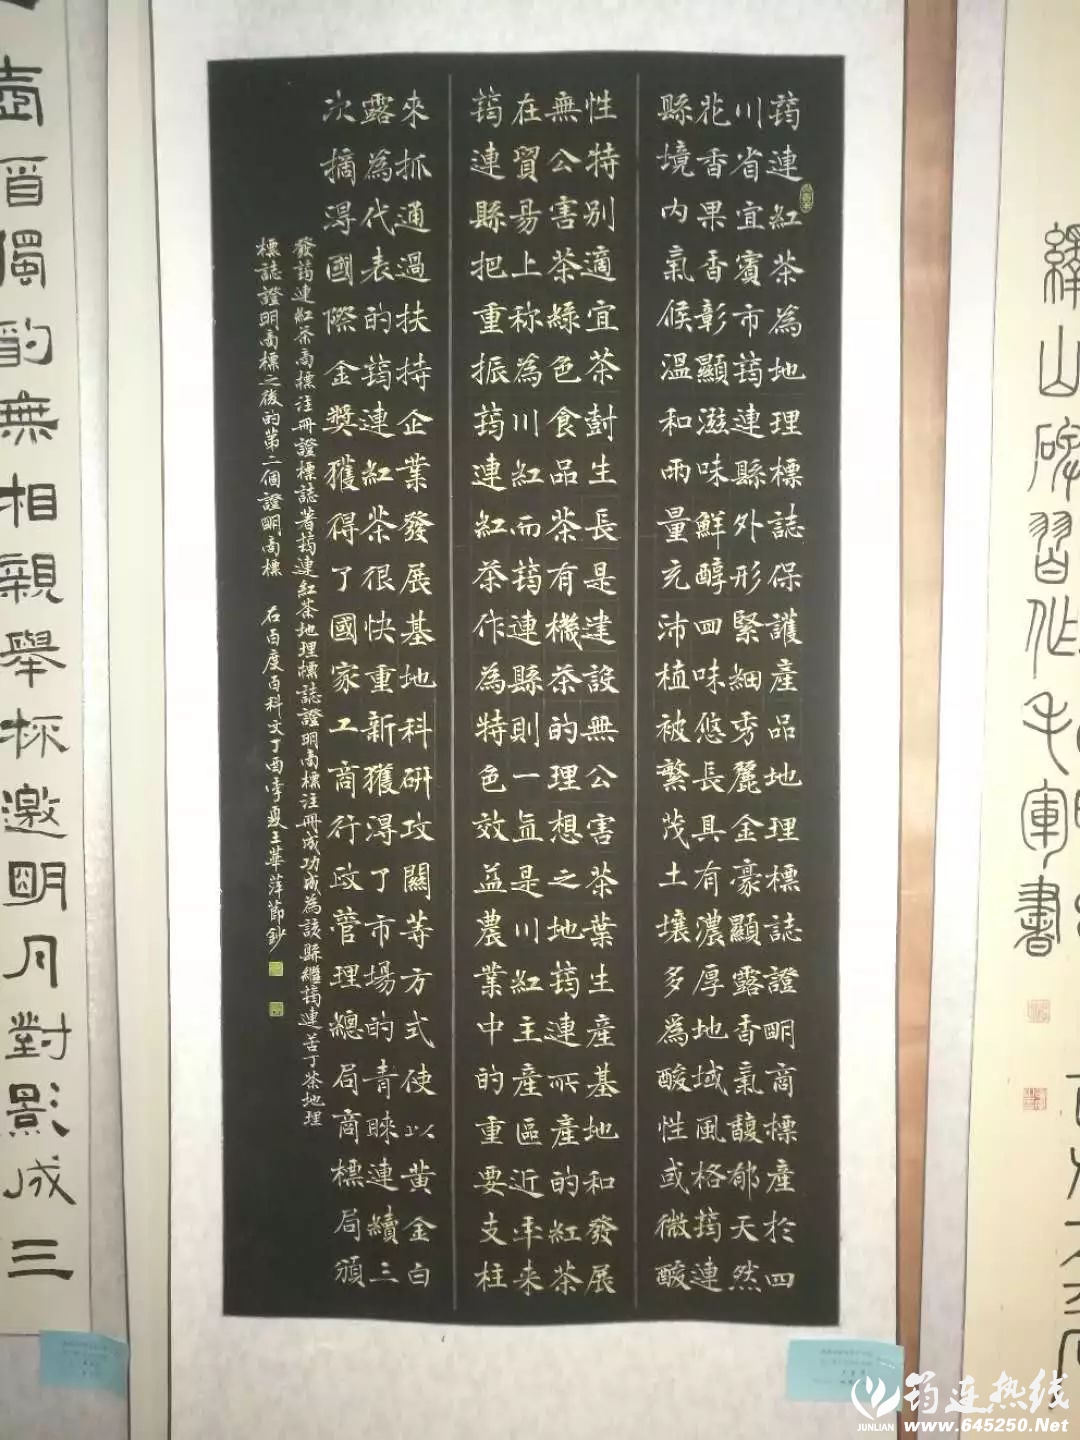 繹山碑習作毛軍書
筠連紅茶為地理標誌保護產品地理標誌證明商標產於四
川省宜賓市筠連縣外形緊細秀麗金豪顯露香氣馥郁天然
花香果香彰顯滋味鮮醇回味悠長具有濃厚地域風格筠連
縣境内氣候溫和雨量充沛植被繁茂土壤多為酸性或微酸
性特别適宜茶尌生長是建設無公害茶葉生產基地和發展
無公害茶綠色食品茶有機茶的理想之地筠連所產的紅茶
在貿易上称為川紅而筠連縣則一直是川紅主產區近年来
筠連縣把重振筠連紅茶作為特色效益農業中的重要支柱
來抓通過扶持企業發展基地科研攻關等方式使以黄金白
露為代表的筠連紅茶很快重新獲得了市場的青睞連續三
次摘得國際金獎獲得了國家工商行政管理總局商標局頒
發筠連紅茶商標注冊證標誌著筠連紅茶地理標誌證明商標注冊成功成為該縣繼筠連苦丁茶地理
標誌證明商標之後的第二個證明商標 右百度百科文丁酉季夏王華萍節鈔
壺酒獨酌無相親舉杯邀明月對影成三
筠连热线
JUNLIAN
www.645250.Net